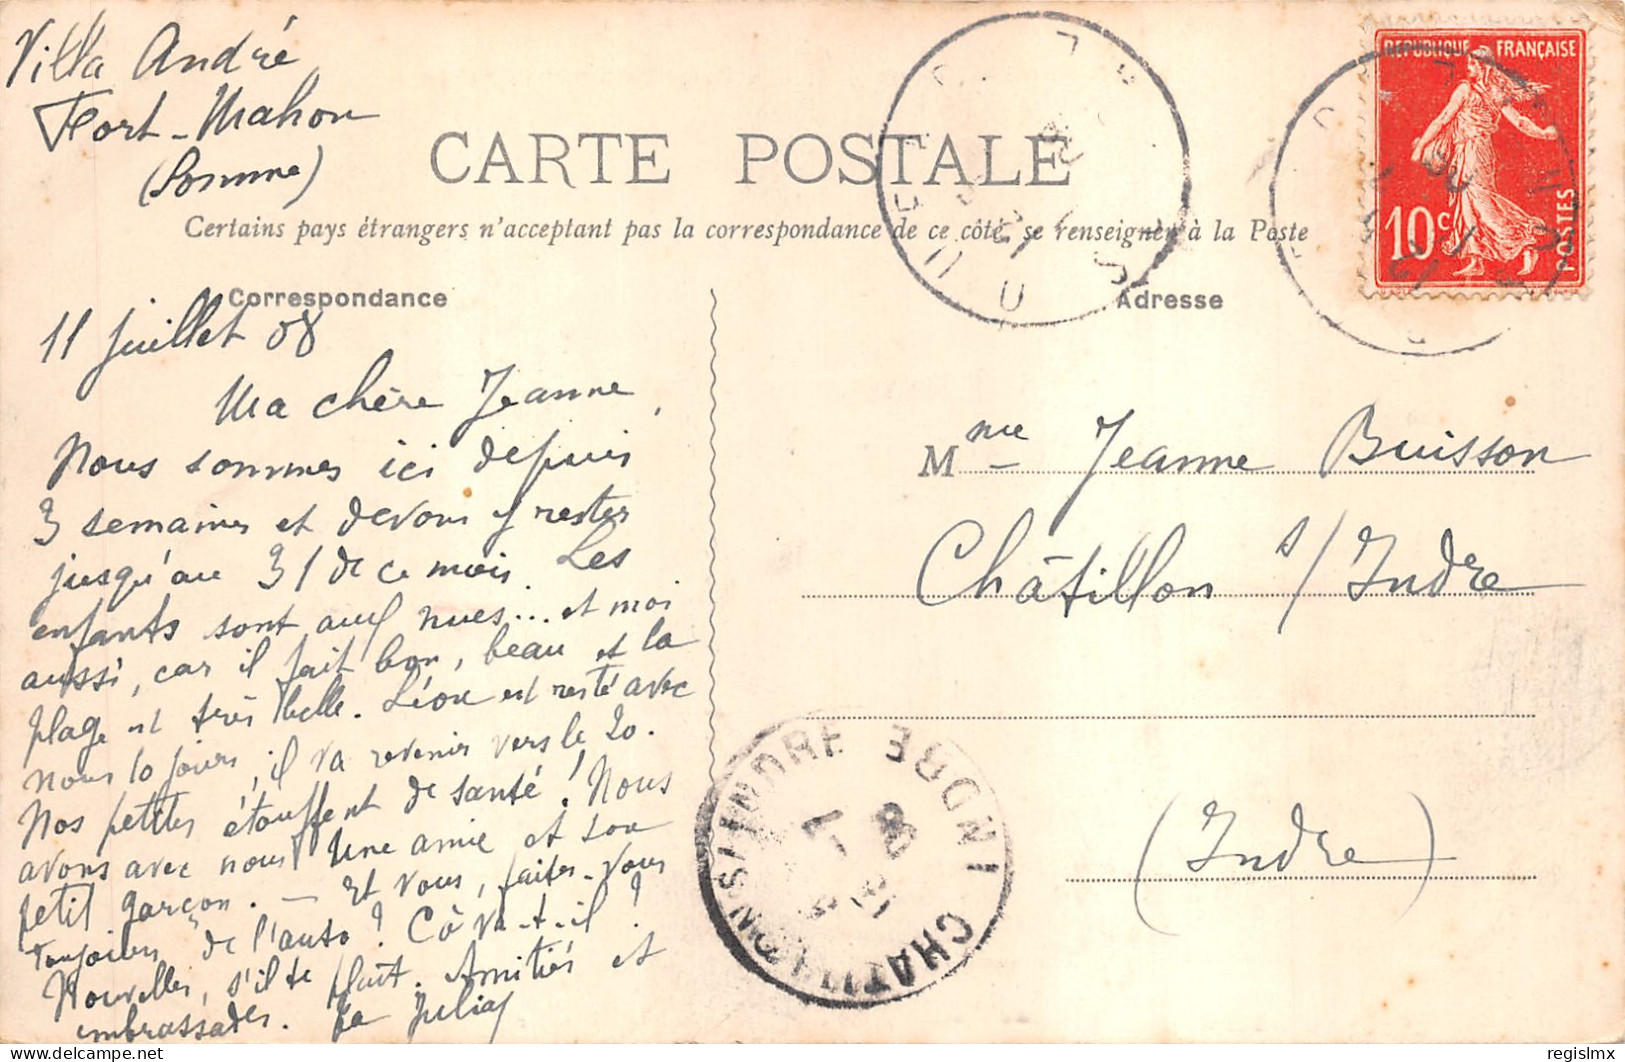 Villa André
Fort-Mahon
(Somme)
CARTE POSTALE
Certains pays étrangers n'acceptant pas la correspondance de ce côté, se renseigner à la Poste
RÉPUBLIQUE FRANÇAISE
10c
POSTES
Correspondance
11 juillet 08
Ma chère Jeanne,
Nous sommes ici depuis
3 semaines et devons y rester
jusqu'au 31 de ce mois. Les
enfants sont aux nues... et moi
aussi, car il fait bon, beau et la
plage est très belle. Léon est resté avec
nous 10 jours, il va revenir vers le 20.
Nos petites étouffent de santé! Nous
avons avec nous une amie et son
petit garçon. — Et vous, faites-vous
toujours de l'auto? Cô va-t-il?
Nouvelles, s'il te plaît. Amitiés et
embrassades. Ta
Adresse
Mme Jeanne Buisson
Châtillon s/Indre
(Indre)
CHATILLON-S-INDRE INDRE
delcampe.net
regislmx